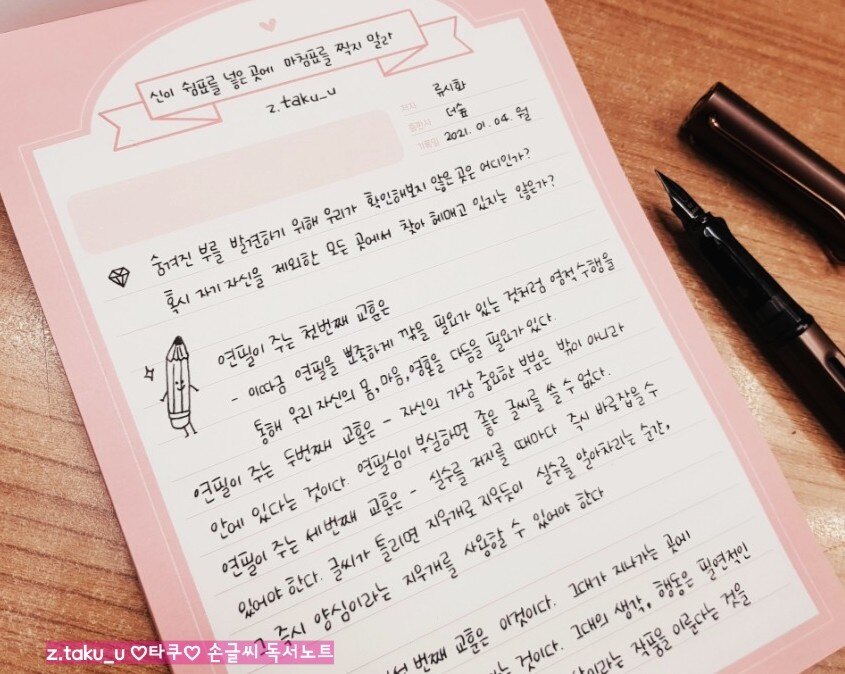 신이 쉼표를 넣은 곳에 마침표를 찍지 말라
z.taku_u
저자 류시화
출판사 더숲
기록일 2021. 01. 04. 월
숨겨진 부를 발견하기 위해 우리가 확인해보지 않은 곳은 어디인가?
혹시 자기 자신을 제외한 모든 곳에서 찾아 헤매고 있지는 않은가?
연필이 주는 첫번째 교훈은
- 이따금 연필을 뾰족하게 깎을 필요가 있는 것처럼 영적수행을
통해 우리 자신의 몸, 마음, 영혼을 다듬을 필요가 있다.
연필이 주는 두번째 교훈은 - 자신의 가장 중요한 부분은 밖이 아니라
안에 있다는 것이다. 연필심이 부실하면 좋은 글씨를 쓸 수 없다.
연필이 주는 세번째 교훈은 - 실수를 저지를 때마다 즉시 바로잡을 수
있어야 한다. 글씨가 틀리면 지우개로 지우듯이 실수를 알아차리는 순간,
그 즉시 양심이라는 지우개를 사용할 수 있어야 한다
번째 교훈은 이것이다. 그대가 지나가는 곳에
는 것이다. 그대의 생각, 행동은 필연적인
이라는 작품을 이룬다는 것을
z.taku_u ♡타쿠♡ 손글씨 독서노트